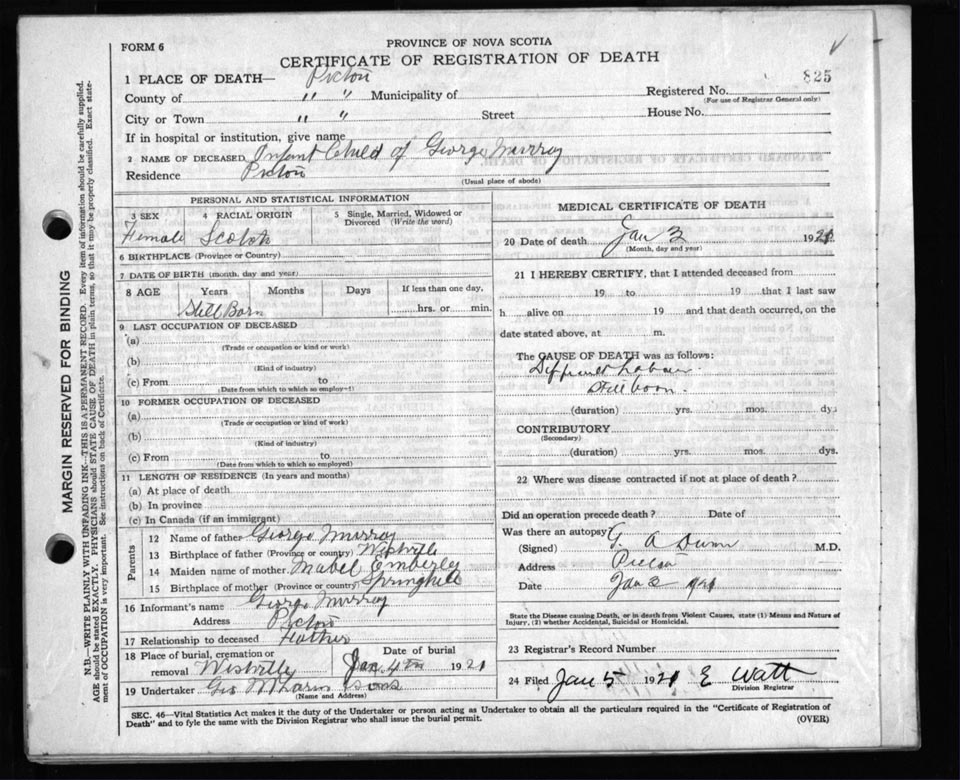 FORM 6
PROVINCE OF NOVA SCOTIA
CERTIFICATE OF REGISTRATION OF DEATH
825
1 PLACE OF DEATH— Pictou
County of " " Municipality of Registered No.
(For use of Registrar General only)
City or Town " " Street House No.
If in hospital or institution, give name
2 NAME OF DECEASED Infant Child of George Murray
Residence Pictou
(Usual place of abode)
PERSONAL AND STATISTICAL INFORMATION
3 SEX 4 RACIAL ORIGIN 5 Single, Married, Widowed or Divorced (Write the word)
Female Scotch
6 BIRTHPLACE (Province or Country)
7 DATE OF BIRTH (month, day and year)
8 AGE Years Months Days If less than one day,
Still Born hrs. or min.
9 LAST OCCUPATION OF DECEASED
(a)
(Trade or occupation or kind or work)
(b)
(Kind of industry)
(c) From to
(Date from which to which so employed)
10 FORMER OCCUPATION OF DECEASED
(a)
(Trade or occupation or kind of work)
(b)
(Kind of industry)
(c) From to
(Date from which to which so employed)
11 LENGTH OF RESIDENCE (In years and months)
(a) At place of death
(b) In province
(c) In Canada (if an immigrant)
Parents
12 Name of father George Murray
13 Birthplace of father (Province or country) Westville
14 Maiden name of mother Mabel Emberley
15 Birthplace of mother (Province or country) Springhill
16 Informant's name George Murray
Address Pictou
17 Relationship to deceased Father
18 Place of burial, cremation or removal Westville
Date of burial
Jan 4th 1921
19 Undertaker Geo Sons
(Name and Address)
MEDICAL CERTIFICATE OF DEATH
20 Date of death Jan 2 1921
(Month, day and year)
21 I HEREBY CERTIFY, that I attended deceased from
19 to 19 that I last saw
h alive on 19 and that death occurred, on the
date stated above, at m.
The CAUSE OF DEATH was as follows:
Difficult Labour
Still born.
(duration) yrs. mos. dys
CONTRIBUTORY
(Secondary)
(duration) yrs. mos. dys.
22 Where was disease contracted if not at place of death?
Did an operation precede death? Date of
Was there an autopsy?
(Signed) G. A Dunn M.D.
Address Pictou
Date Jan 2 1921
State the Disease causing Death, or in death from Violent Causes, state (1) Means and Nature of
Injury, (2) whether Accidental, Suicidal or Homicidal.
23 Registrar's Record Number
24 Filed Jan 5 1921 E Watt
Division Registrar
SEC. 46—Vital Statistics Act makes it the duty of the Undertaker or person acting as Undertaker to obtain all the particulars required in the "Certificate of Registration of
Death" and to fyle the same with the Division Registrar who shall issue the burial permit. (OVER)
MARGIN RESERVED FOR BINDING
N.B.—WRITE PLAINLY WITH UNFADING INK—THIS IS A PERMANENT RECORD. Every item of information should be carefully supplied.
AGE should be stated EXACTLY. PHYSICIANS should STATE CAUSE OF DEATH in plain terms, so that it may be properly classified. Exact statement
of OCCUPATION is very important. See instructions on back of Certificate.